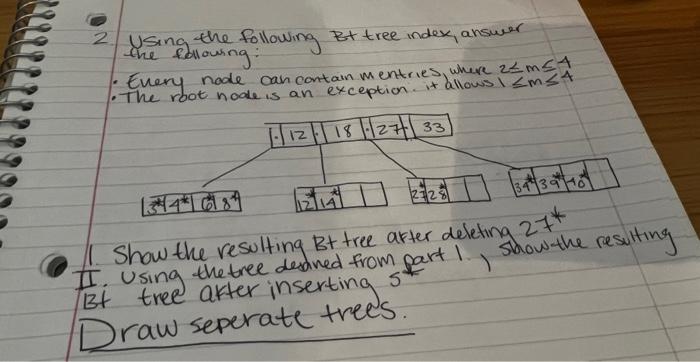 2. Using the following B+ tree index, answer
the following:
• Every node can contain m entries, where 2≤m≤4
• The root node is an exception. it allows 1≤m≤4
12 18 27 33
3* 4* 6* 8* 12* 14* 27* 28* 34* 39* 40*
1. Show the resulting B+ tree after deleting 27*
II. Using the tree desined from part 1., show the resulting
B+ tree after inserting 5*
Draw seperate trees.